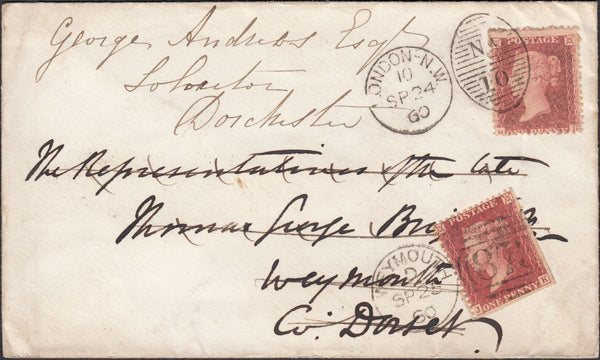 George Andrews Esqr
Solicitor
Dorchester
LONDON-N.W
10
SP 24
60
N.W
10
POSTAGE
ONE PENNY
The Representatives of the late
Thomas George
Weymouth
Co. Dorset.
WEYMOUTH
D
SP 25
60
POSTAGE
J ONE PENNY E